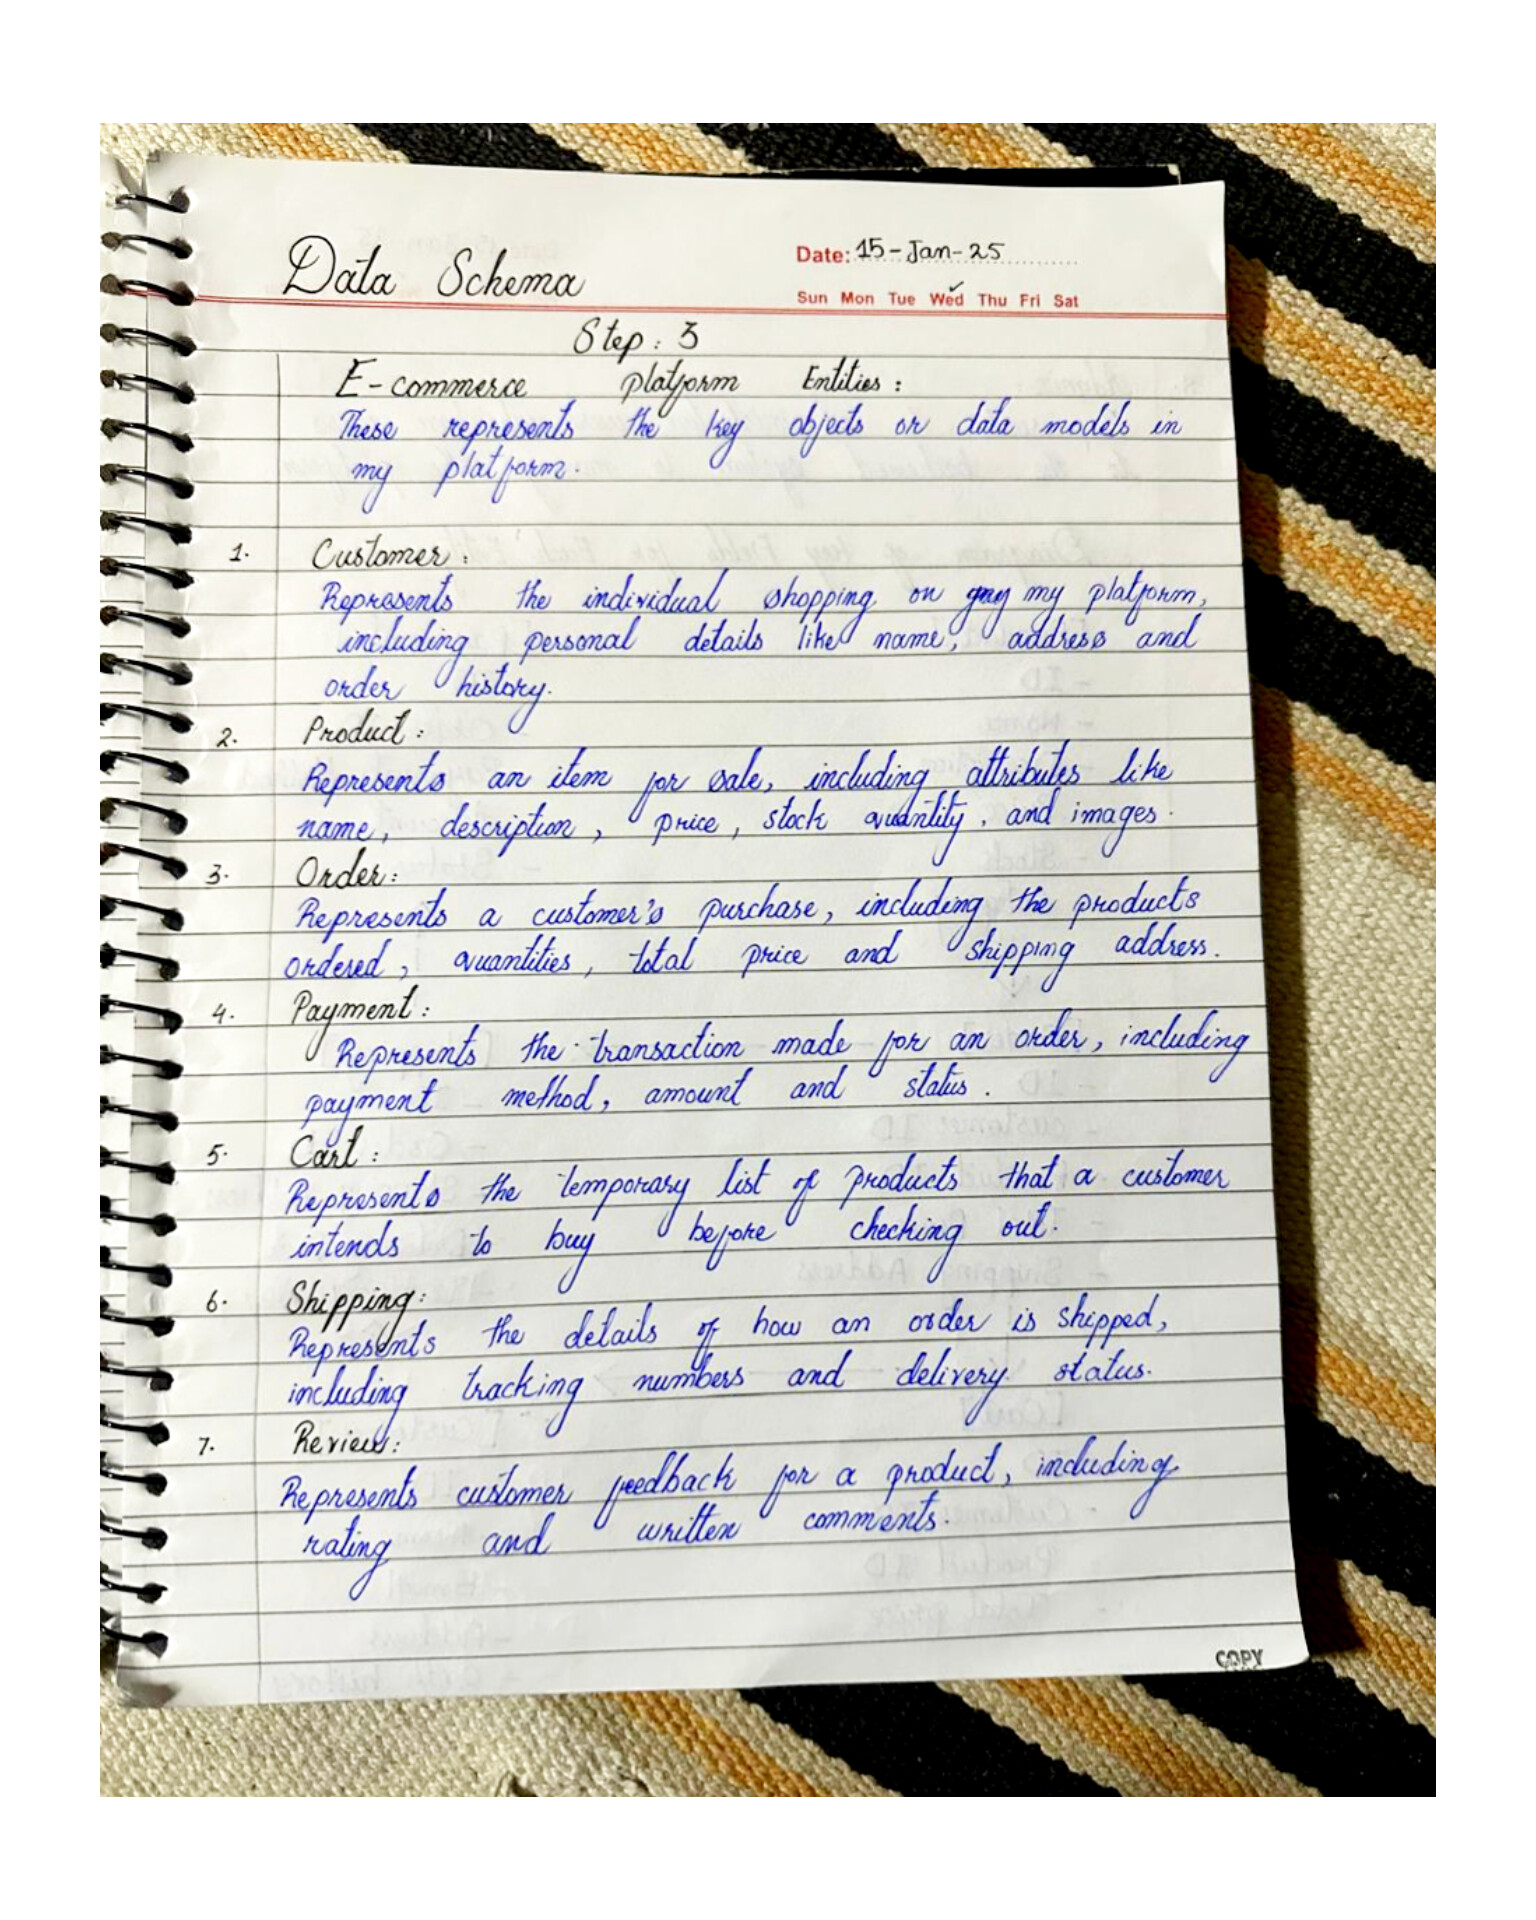 Data Schema
Date: 15-Jan-25
Sun Mon Tue Wed Thu Fri Sat
Step: 3
E-commerce Platform Entities:
These represents the key objects or data models in
my platform.
1. Customer:
Represents the individual shopping on my platform,
including personal details like name, address and
order history.
2. Product:
Represents an item for sale, including attributes like
name, description, price, stock quantity, and images.
3. Order:
Represents a customer's purchase, including the products
ordered, quantities, total price and shipping address.
4. Payment:
Represents the transaction made for an order, including
payment method, amount and status.
5. Cart:
Represents the temporary list of products that a customer
intends to buy before checking out.
6. Shipping:
Represents the details of how an order is shipped,
including tracking numbers and delivery status.
7. Review:
Represents customer feedback for a product, including
rating and written comments.
COPY